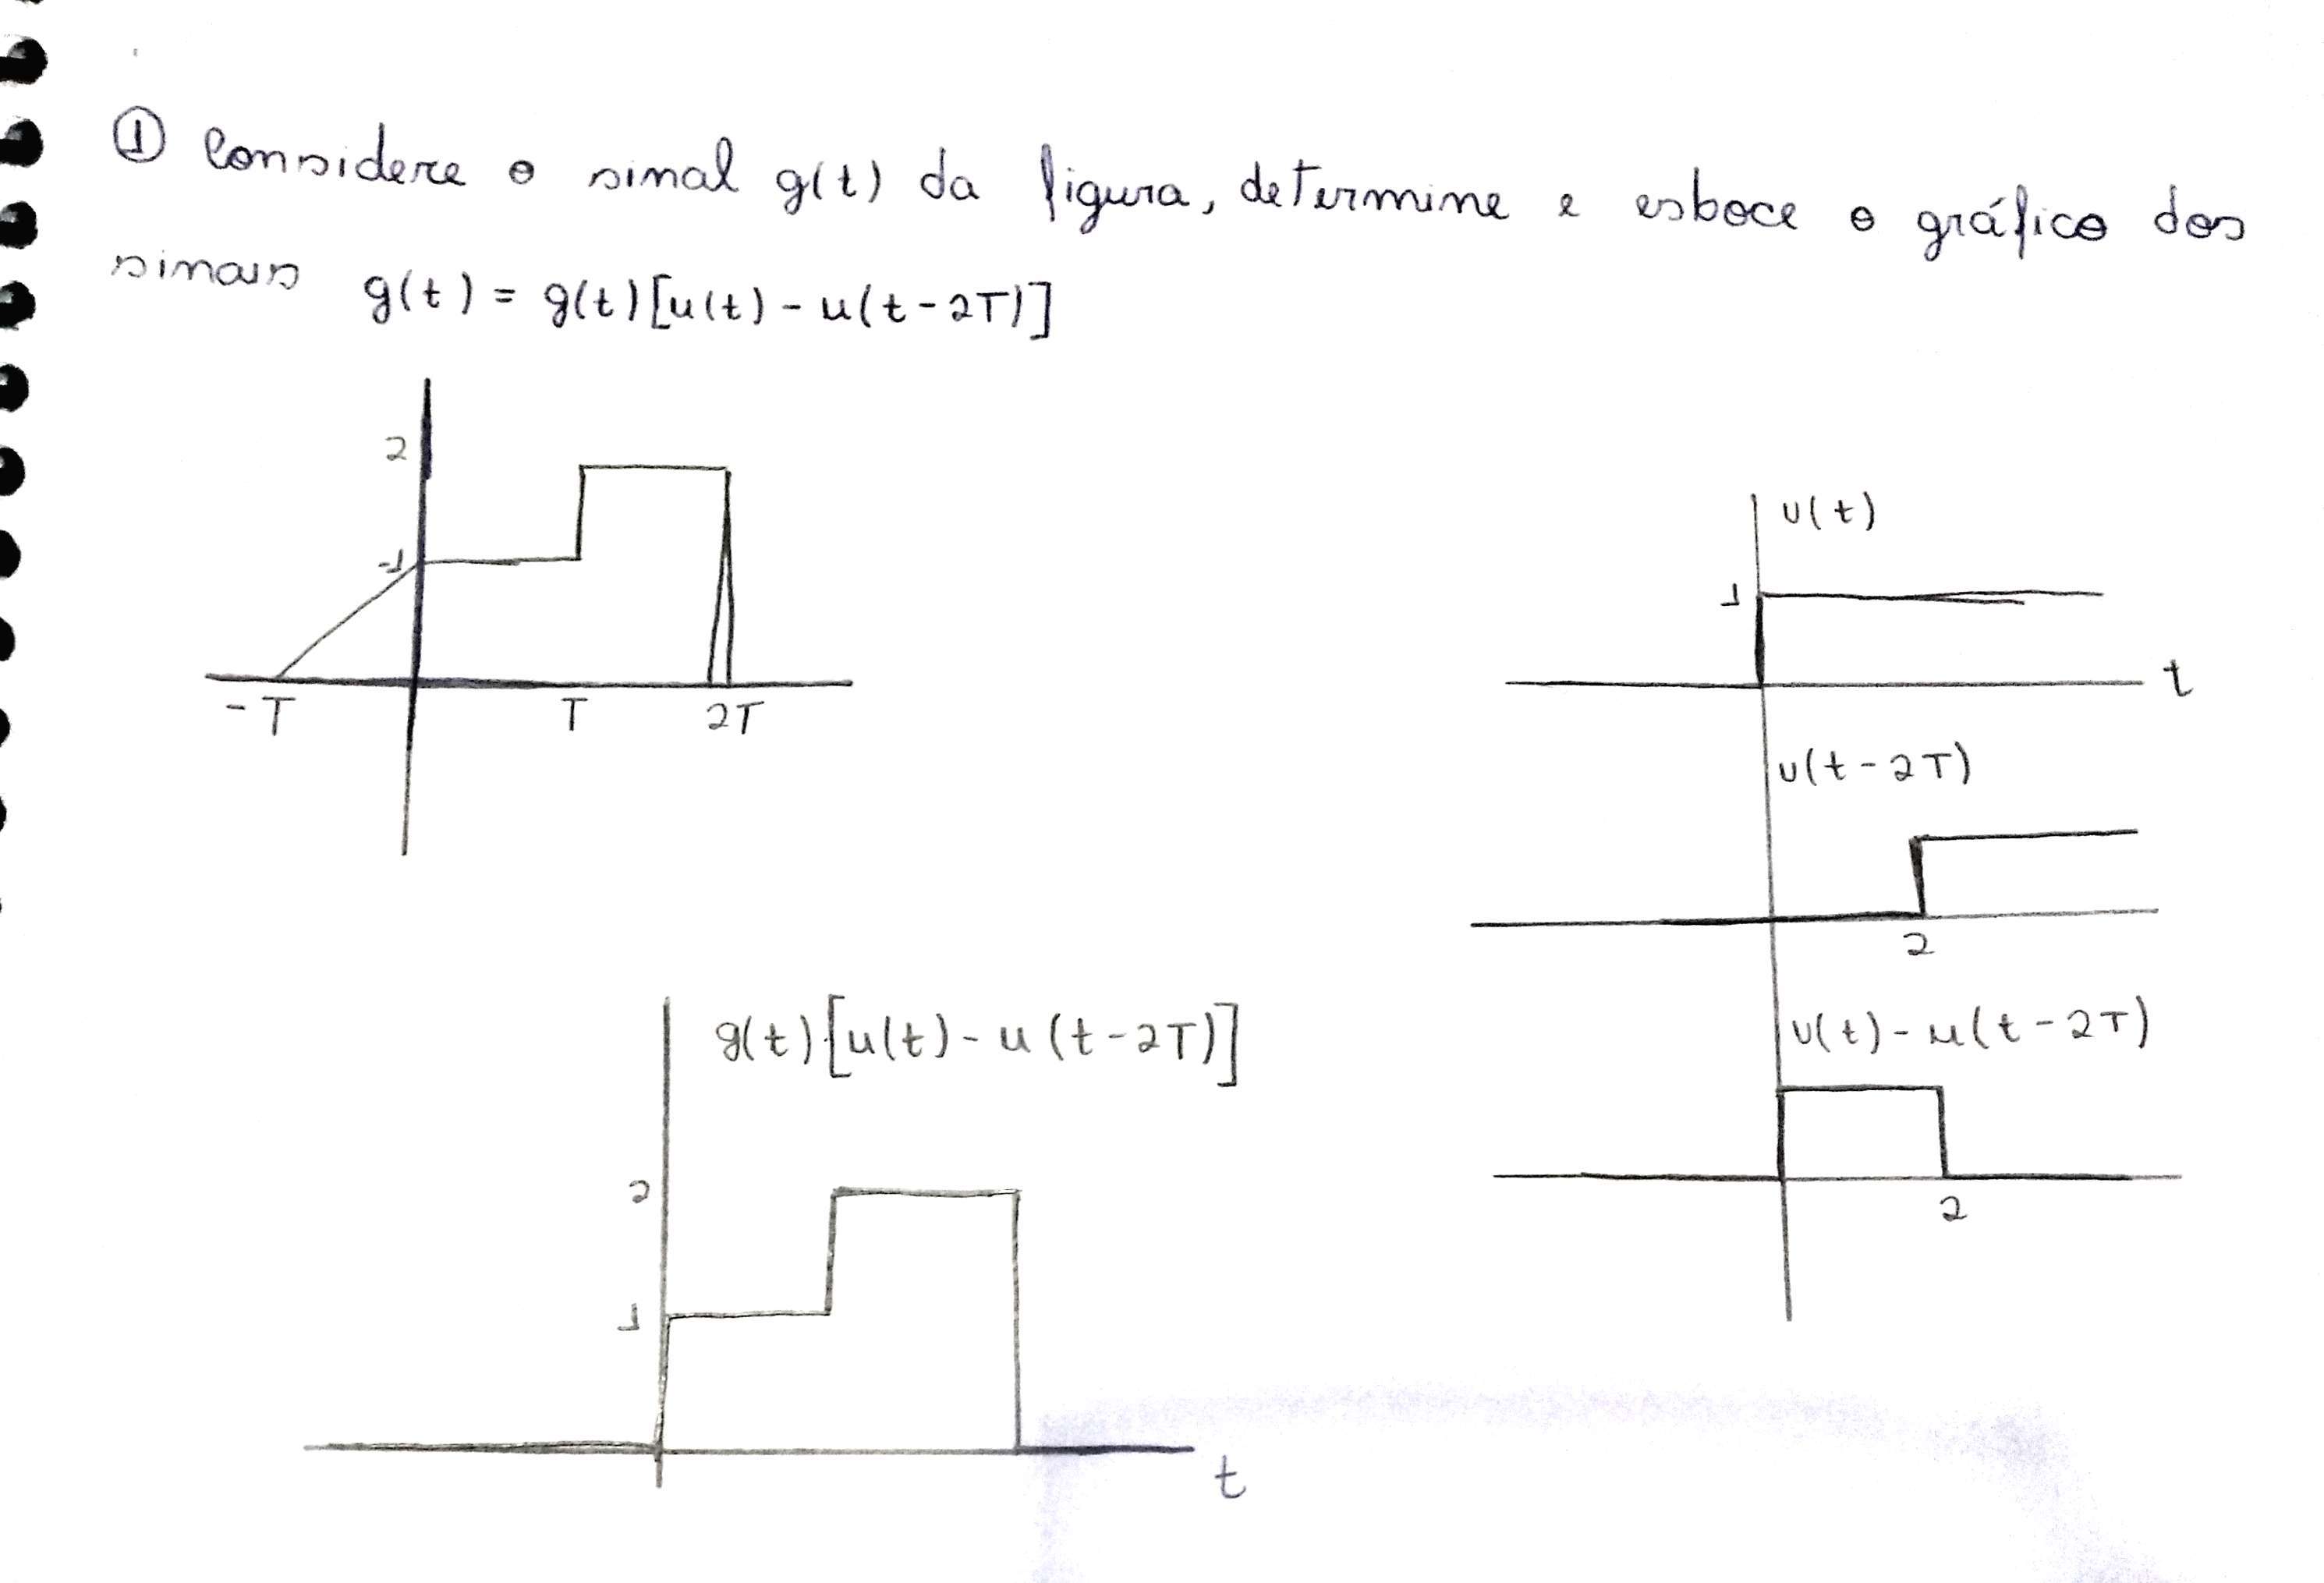 ① Considere o sinal g(t) da figura, determine e esboce o gráfico dos
sinais g(t) = g(t)[u(t) - u(t-2T)]
2
-1
-T T 2T
u(t)
1
t
u(t-2T)
2
u(t) - u(t-2T)
2
g(t)·[u(t) - u(t-2T)]
2
1
t